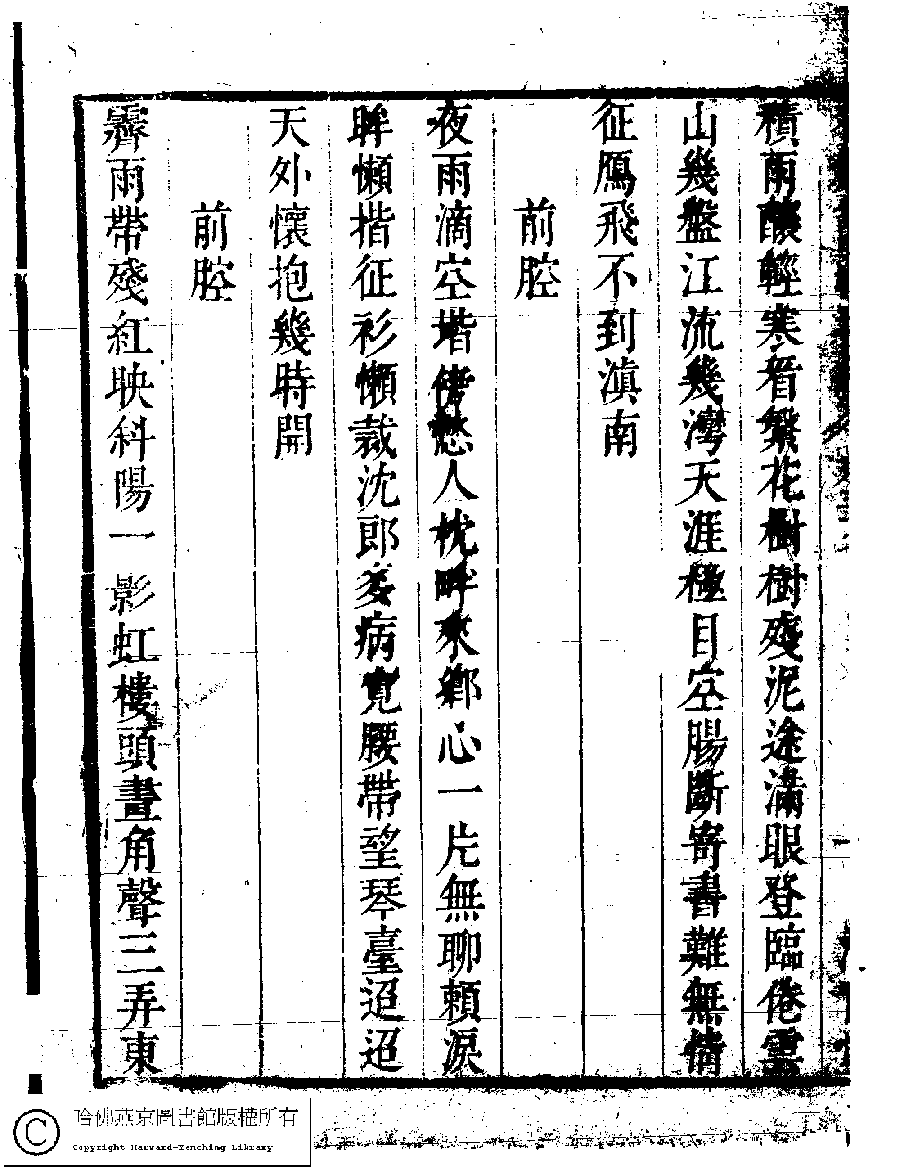 積雨釀輕寒看繁花樹樹殘泥途滿眼登臨倦雲
山幾盤江流幾灣天涯極目空腸斷寄書難無情
征鴈飛不到滇南
前腔
夜雨滴空堦傍愁人枕畔來鄉心一片無聊賴淚
眸懶揩征衫懶裁沈郎多病寬腰帶望琴臺迢迢
天外懷抱幾時開
前腔
霽雨帶殘紅映斜陽一影虹樓頭畫角聲三弄東
哈佛燕京圖書館版權所有
Copyright Harvard-Yenching Library